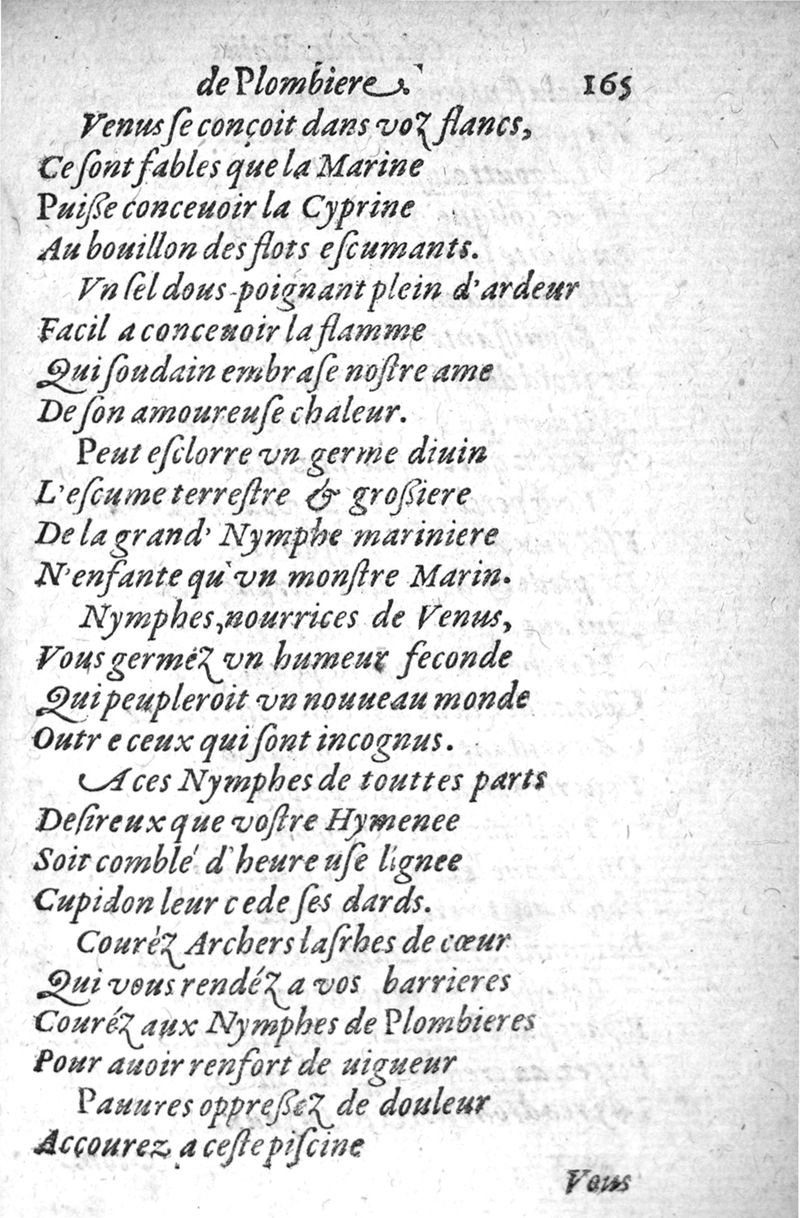 de Plombiere. 165
Venus ſe conçoit dans voz flancs,
Ce ſont fables que la Marine
Puiße conceuoir la Cyprine
Au bouillon des flots eſcumants.
Vn ſel dous-poignant plein d'ardeur
Facil a conceuoir la flamme
Qui ſoudain embraſe noſtre ame
De ſon amoureuſe chaleur.
Peut eſclorre vn germe diuin
L'eſcume terreſtre & großiere
De la grand' Nymphe mariniere
N'enfante qu'vn monſtre Marin.
Nymphes, nourrices de Venus,
Vous germéz vn humeur feconde
Qui peupleroit vn nouueau monde
Outr e ceux qui ſont incognus.
A ces Nymphes de touttes parts
Deſireux que voſtre Hymenee
Soit comblé d'heureuſe lignee
Cupidon leur cede ſes dards.
Couréz Archers laſrhes de cœur
Qui vous rendéz a vos barrieres
Couréz aux Nymphes de Plombieres
Pour auoir renfort de uigueur
Pauures oppreßez de douleur
Accourez a ceſte piſcine
Vous